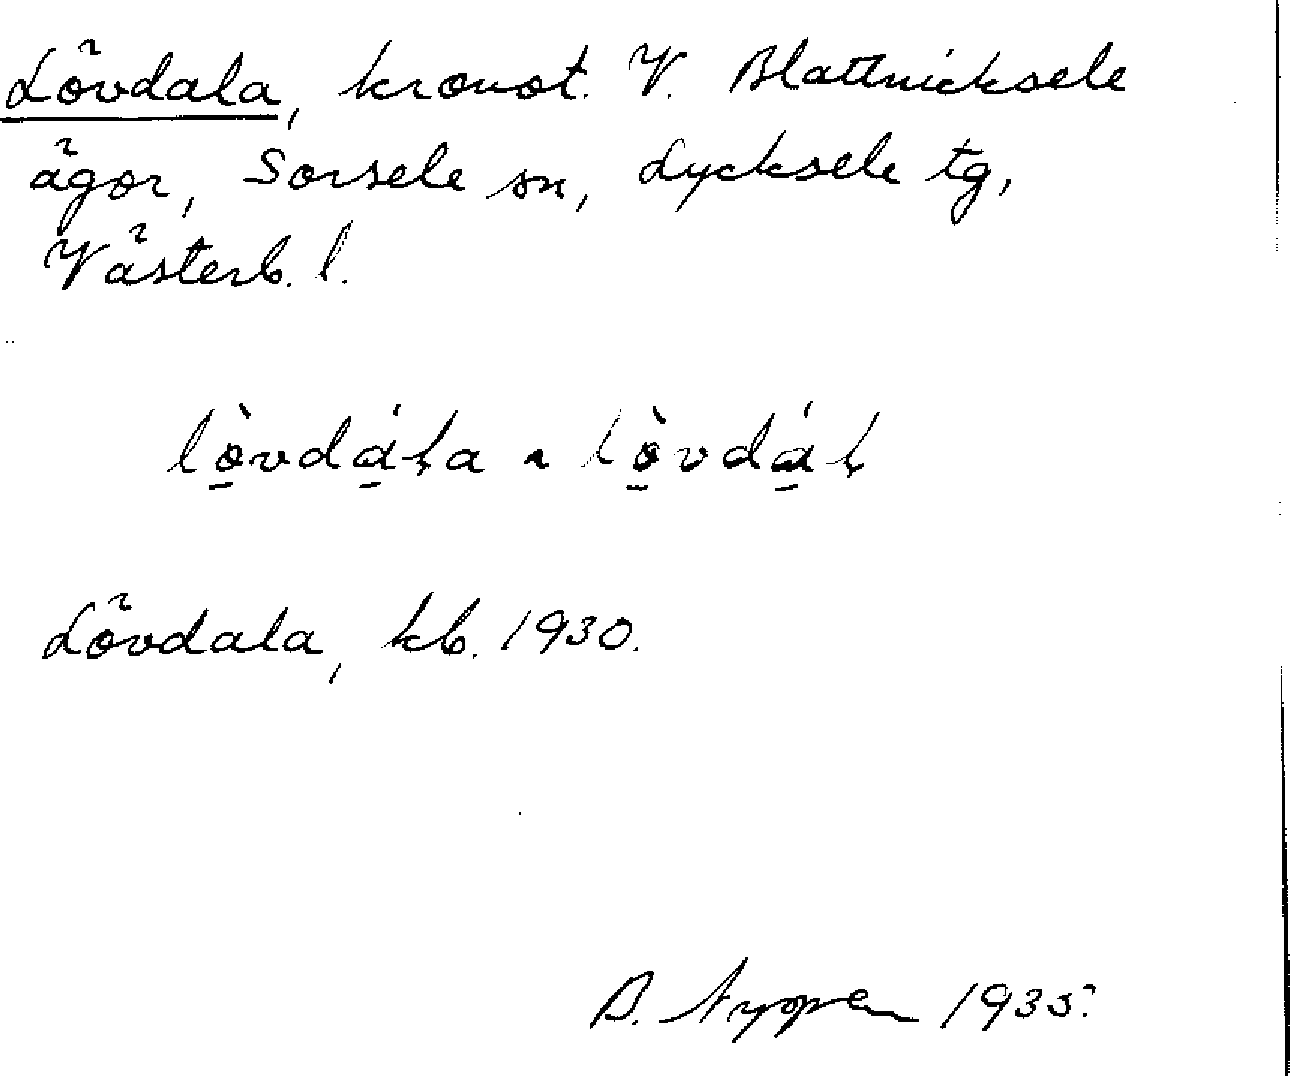 Lövdala, kronot. V. Blattnicksele
ägor, Sorsele sn, Lycksele tg,
Västerb. l.
lò̱vdá̱ļa ~ lò̱vdá̱ļ
Lövdala, kb. 1930.
B. 1935.